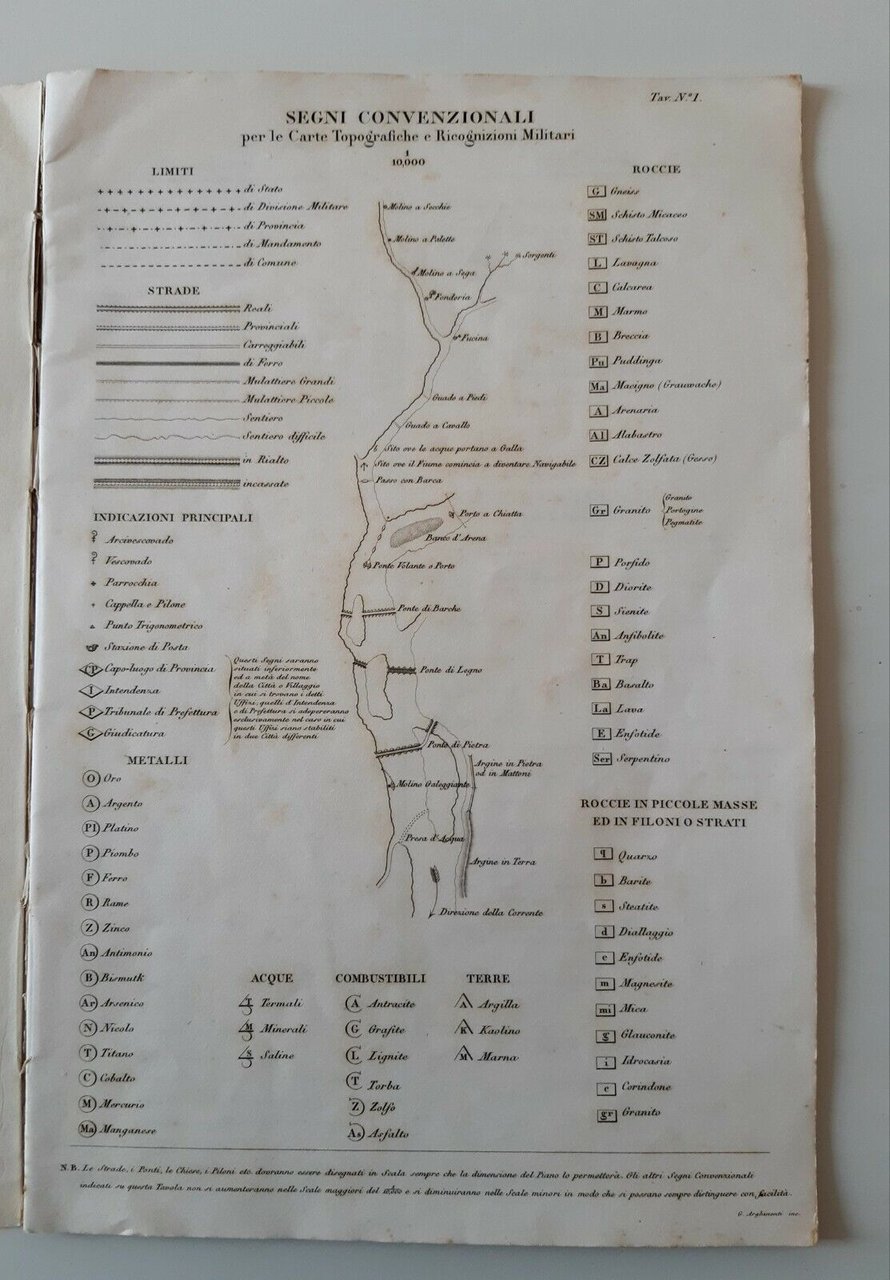 Tav. N.º 1.
SEGNI CONVENZIONALI
per le Carte Topografiche e Ricognizioni Militari
1
10,000
LIMITI
di Stato
di Divisione Militare
di Provincia
di Mandamento
di Comune
STRADE
Reali
Provinciali
Carreggiabili
di Ferro
Mulattiere Grandi
Mulattiere Piccole
Sentiero
Sentiero difficile
in Rialto
incassate
INDICAZIONI PRINCIPALI
Arcivescovado
Vescovado
Parrocchia
Cappella e Pilone
Punto Trigonometrico
Stazione di Posta
CP Capo-luogo di Provincia
I Intendenza
P Tribunale di Prefettura
G Giudicatura
Questi Segni saranno
situati inferiormente
ed a metà del nome
della Città o Villaggio
in cui si trovano i detti
Uffizi; quelli d'Intendenza
e di Prefettura si adopereranno
esclusivamente nel caso in cui
questi Uffizi siano stabiliti
in due Città differenti
METALLI
O Oro
A Argento
Pl Platino
P Piombo
F Ferro
R Rame
Z Zinco
An Antimonio
B Bismutk
Ar Arsenico
N Nicolo
T Titano
C Cobalto
M Mercurio
Ma Manganese
Molino a Secchie
Molino a Palette
Sorgenti
Molino a Sega
Fonderia
Fucina
Guado a Piedi
Guado a Cavallo
Sito ove le acque portano a Galla
Sito ove il Fiume comincia a diventare Navigabile
Passo con Barca
Porto a Chiatta
Banco d'Arena
Ponte Volante o Porto
Ponte di Barche
Ponte di Legno
Ponte di Pietra
Argine in Pietra
od in Mattoni
Molino Galeggiante
Presa d'Acqua
Argine in Terra
Direzione della Corrente
ACQUE
T Termali
M Minerali
S Saline
COMBUSTIBILI
A Antracite
G Grafite
L Lignite
T Torba
Z Zolfo
As Asfalto
TERRE
A Argilla
K Kaolino
M Marna
ROCCIE
G Gneiss
SM Schisto Micaceo
ST Schisto Talcoso
L Lavagna
C Calcarea
M Marmo
B Breccia
Pu Puddinga
Ma Macigno (Grauwache)
A Arenaria
Al Alabastro
CZ Calce Zolfata (Gesso)
Gr Granito
Granito
Portogine
Pegmatite
P Porfido
D Diorite
S Sienite
An Anfibolite
T Trap
Ba Basalto
La Lava
E Enfotide
Ser Serpentino
ROCCIE IN PICCOLE MASSE
ED IN FILONI O STRATI
q Quarzo
b Barite
s Steatite
d Diallaggio
e Enfotide
m Magnesite
mi Mica
g Glauconite
i Idrocasia
c Corindone
gr Granito
N.B. Le Strade, i Ponti, le Chiese, i Piloni etc. dovranno essere disegnati in Scala sempre che la dimensione del Piano lo permetterà. Gli altri Segni Convenzionali
indicati su questa Tavola non si aumenteranno nelle Scale maggiori del e si diminuiranno nelle Scale minori in modo che si possano sempre distinguere con facilità.
G. Arghinenti inc.